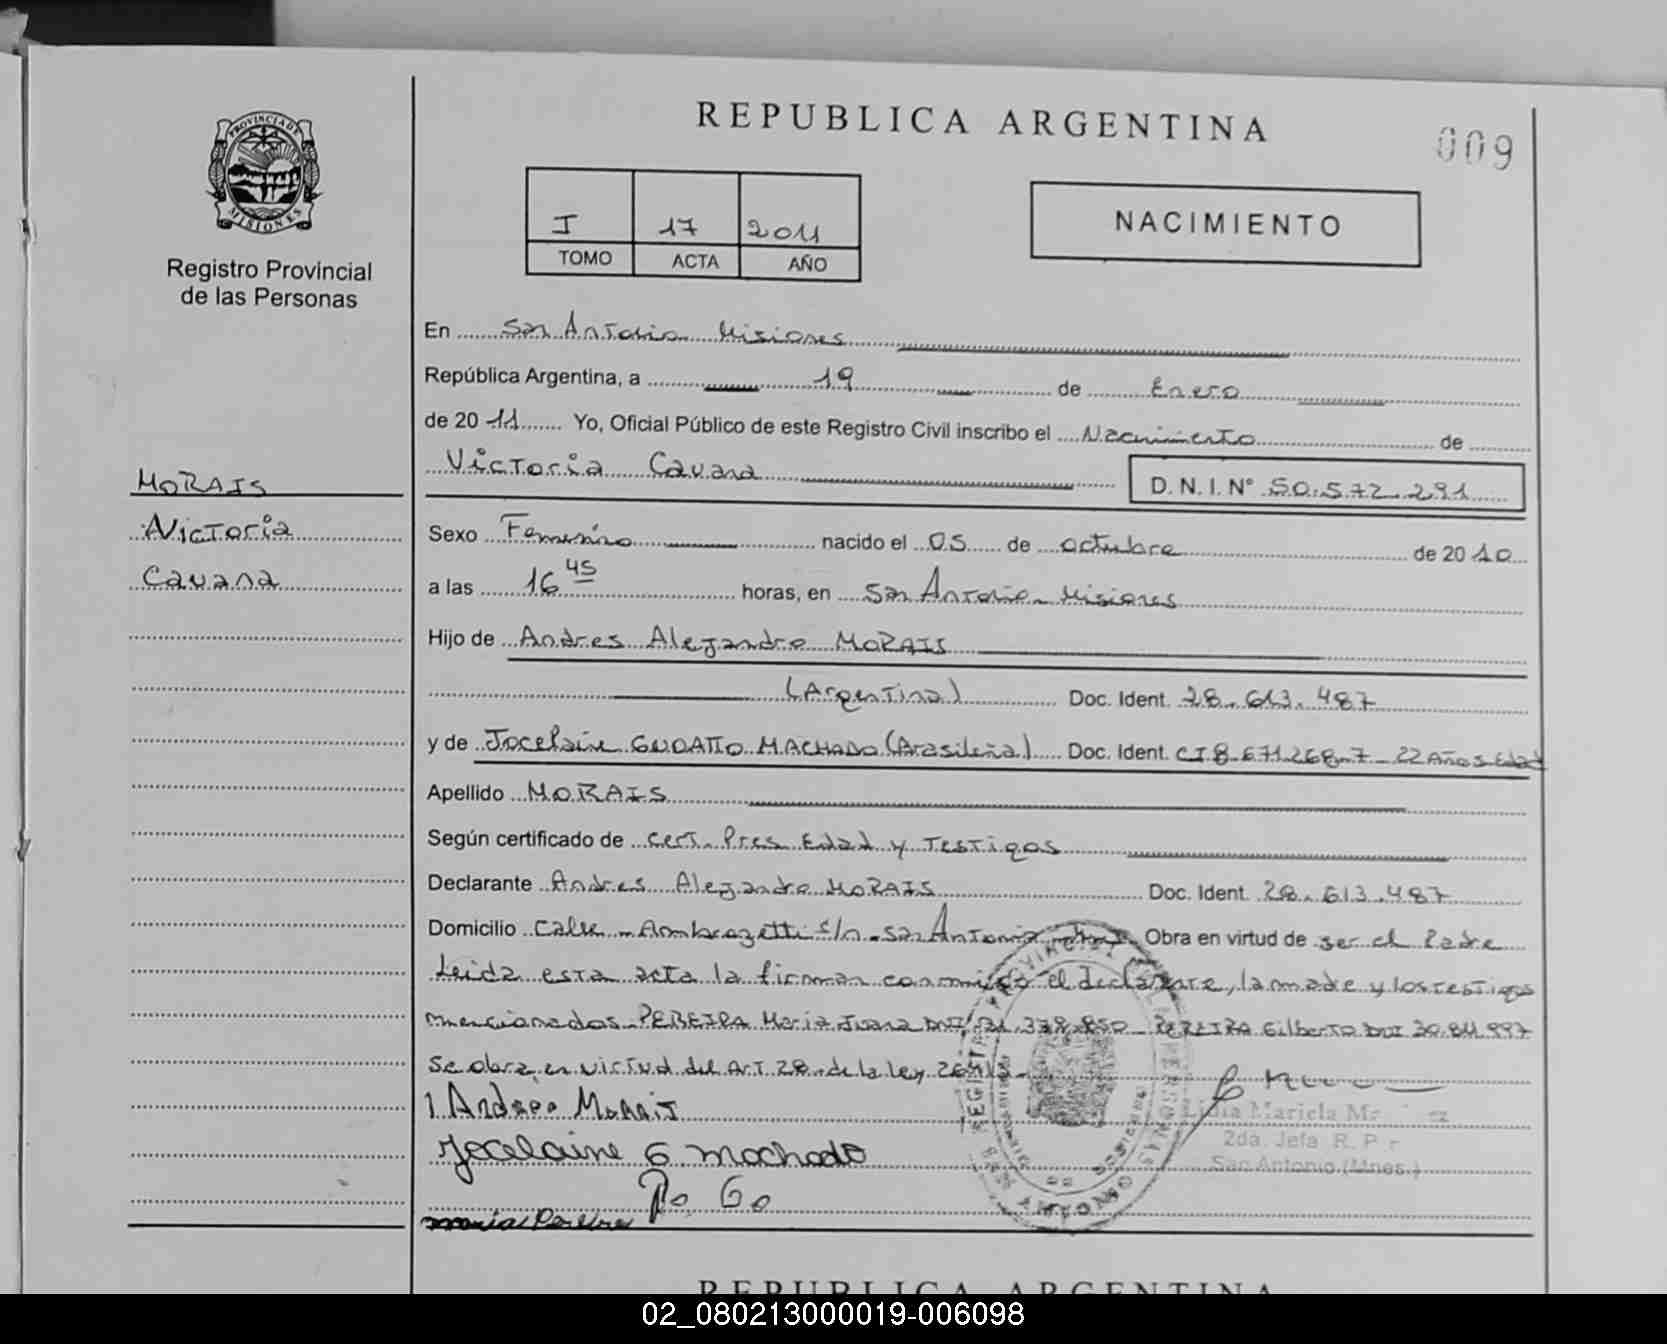 PROVINCIA DE
MISIONES
Registro Provincial
de las Personas
MORAIS
Victoria
Cauana
REPUBLICA ARGENTINA
009
I 17 2011
TOMO ACTA AÑO
NACIMIENTO
En San Antonio Misiones
República Argentina, a 19 de Enero
de 20 11 Yo, Oficial Público de este Registro Civil inscribo el Nacimiento de
Victoria Cauana D.N.I. N° 50.572.291
Sexo Femenino nacido el 05 de octubre de 20 10
a las 16 45 horas, en San Antonio - Misiones
Hijo de Andres Alejandro MORAIS
(Argentina) Doc. Ident. 28.613.487
y de Jocelaine GUDATTO MACHADO (Brasileña) Doc. Ident. CI 8.671.268-7 - 22 Años Edad
Apellido MORAIS
Según certificado de cert. Pres. Edad y Testigos
Declarante Andres Alejandro MORAIS Doc. Ident. 28.613.487
Domicilio Calle - Ambrozetti s/n - San Antonio Obra en virtud de ser el Padre
Leida esta acta la firman conmigo el declarante, la madre y los testigos
mencionados PEREIRA Maria Juana DNI 378.850 - PEREIRA Gilberto DNI 30.811.997
Se obra en virtud del Art. 28 - de la ley
Andres Morais
Jocelaine G machado
Po Go
maria Pereira
Lidia Mariela
2da. Jefa R. P.
San Antonio (Mnes.)
REPUBLICA ARGENTINA
02_080213000019-006098